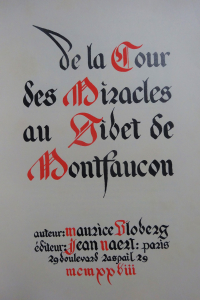 de la Cour
des Miracles
au Gibet de
Montfaucon
auteur: maurice Vloberg
éditeur: Jean naert: paris
29 boulevard raspail 29
mcmxxviii